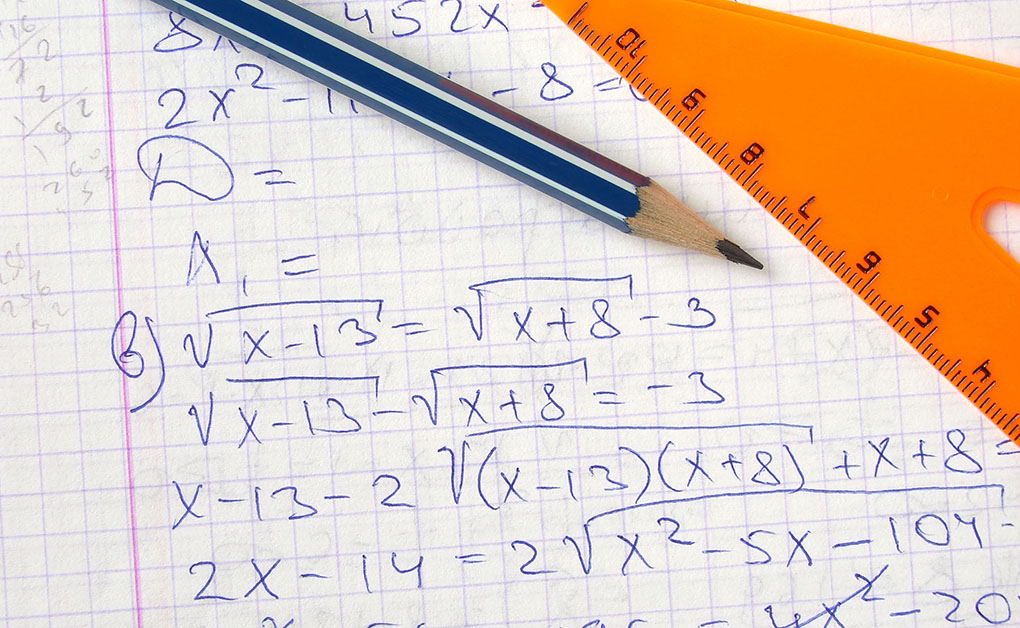 8x 452x
2x² - 11 - 8 =
D =
x₁ =
в) √(x-13) = √(x+8) - 3
√(x-13) - √(x+8) = -3
x-13-2√((x-13)(x+8)) + x+8 =
2x-14 = 2√(x²-5x-104
4x² - 20
10
9
8
7
6
5
4